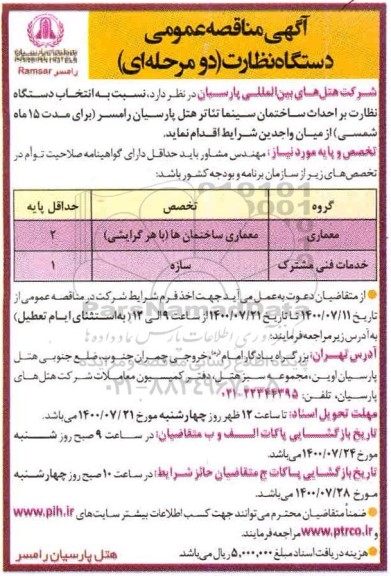 آگهی مناقصه عمومی
دستگاه نظارت (دو مرحله‌ای)
PARSIAN INTERNATIONAL HOTELS
رامسر Ramsar
شرکت هتل‌های بین‌المللی پارسیان در نظر دارد، نسبت به انتخاب دستگاه
نظارت بر احداث ساختمان سینما تئاتر هتل پارسیان رامسر (برای مدت ۱۵ ماه
شمسی) از میان واجدین شرایط اقدام نماید.
تخصص و پایه مورد نیاز: مهندس مشاور باید حداقل دارای گواهینامه صلاحیت توأم در
تخصص‌های زیر از سازمان برنامه و بودجه کشور باشد:
گروه تخصص حداقل پایه
معماری معماری ساختمان ها (با هر گرایشی) ۲
خدمات فنی مشترک سازه ۱
از متقاضیان دعوت به عمل می‌آید جهت اخذ فرم شرایط شرکت در مناقصه عمومی از
تاریخ ۱۴۰۰/۰۷/۱۱ تا تاریخ ۱۴۰۰/۰۷/۲۱ از ساعت ۹ الی ۱۲ (به استثنای ایام تعطیل)
به آدرس زیر مراجعه فرمایند:
آدرس تهران: بزرگراه یادگار امام (ره)، خروجی چمران جنوب، ضلع جنوبی هتل
پارسیان اوین، مجموعه سبز هتل، دفتر کمیسیون معاملات شرکت هتل های
پارسیان، تلفن: ۲۲۳۴۴۳۹۵-۰۲۱
مهلت تحویل اسناد: تا ساعت ۱۲ ظهر روز چهارشنبه مورخ ۱۴۰۰/۰۷/۲۱ می‌باشد.
تاریخ بازگشایی پاکات الف و ب متقاضیان: در ساعت ۹ صبح روز شنبه
مورخ ۱۴۰۰/۰۷/۲۴ می‌باشد.
تاریخ بازگشایی پاکات ج متقاضیان حائز شرایط: در ساعت ۱۰ صبح روز چهارشنبه
مورخ ۱۴۰۰/۰۷/۲۸ می‌باشد.
ضمناً متقاضیان محترم می‌توانند جهت کسب اطلاعات بیشتر سایت‌های www.pih.ir
و www.ptrco.ir مراجعه فرمایند.
هزینه دریافت اسناد مبلغ ۵,۰۰۰,۰۰۰ ریال می‌باشد.
هتل پارسیان رامسر